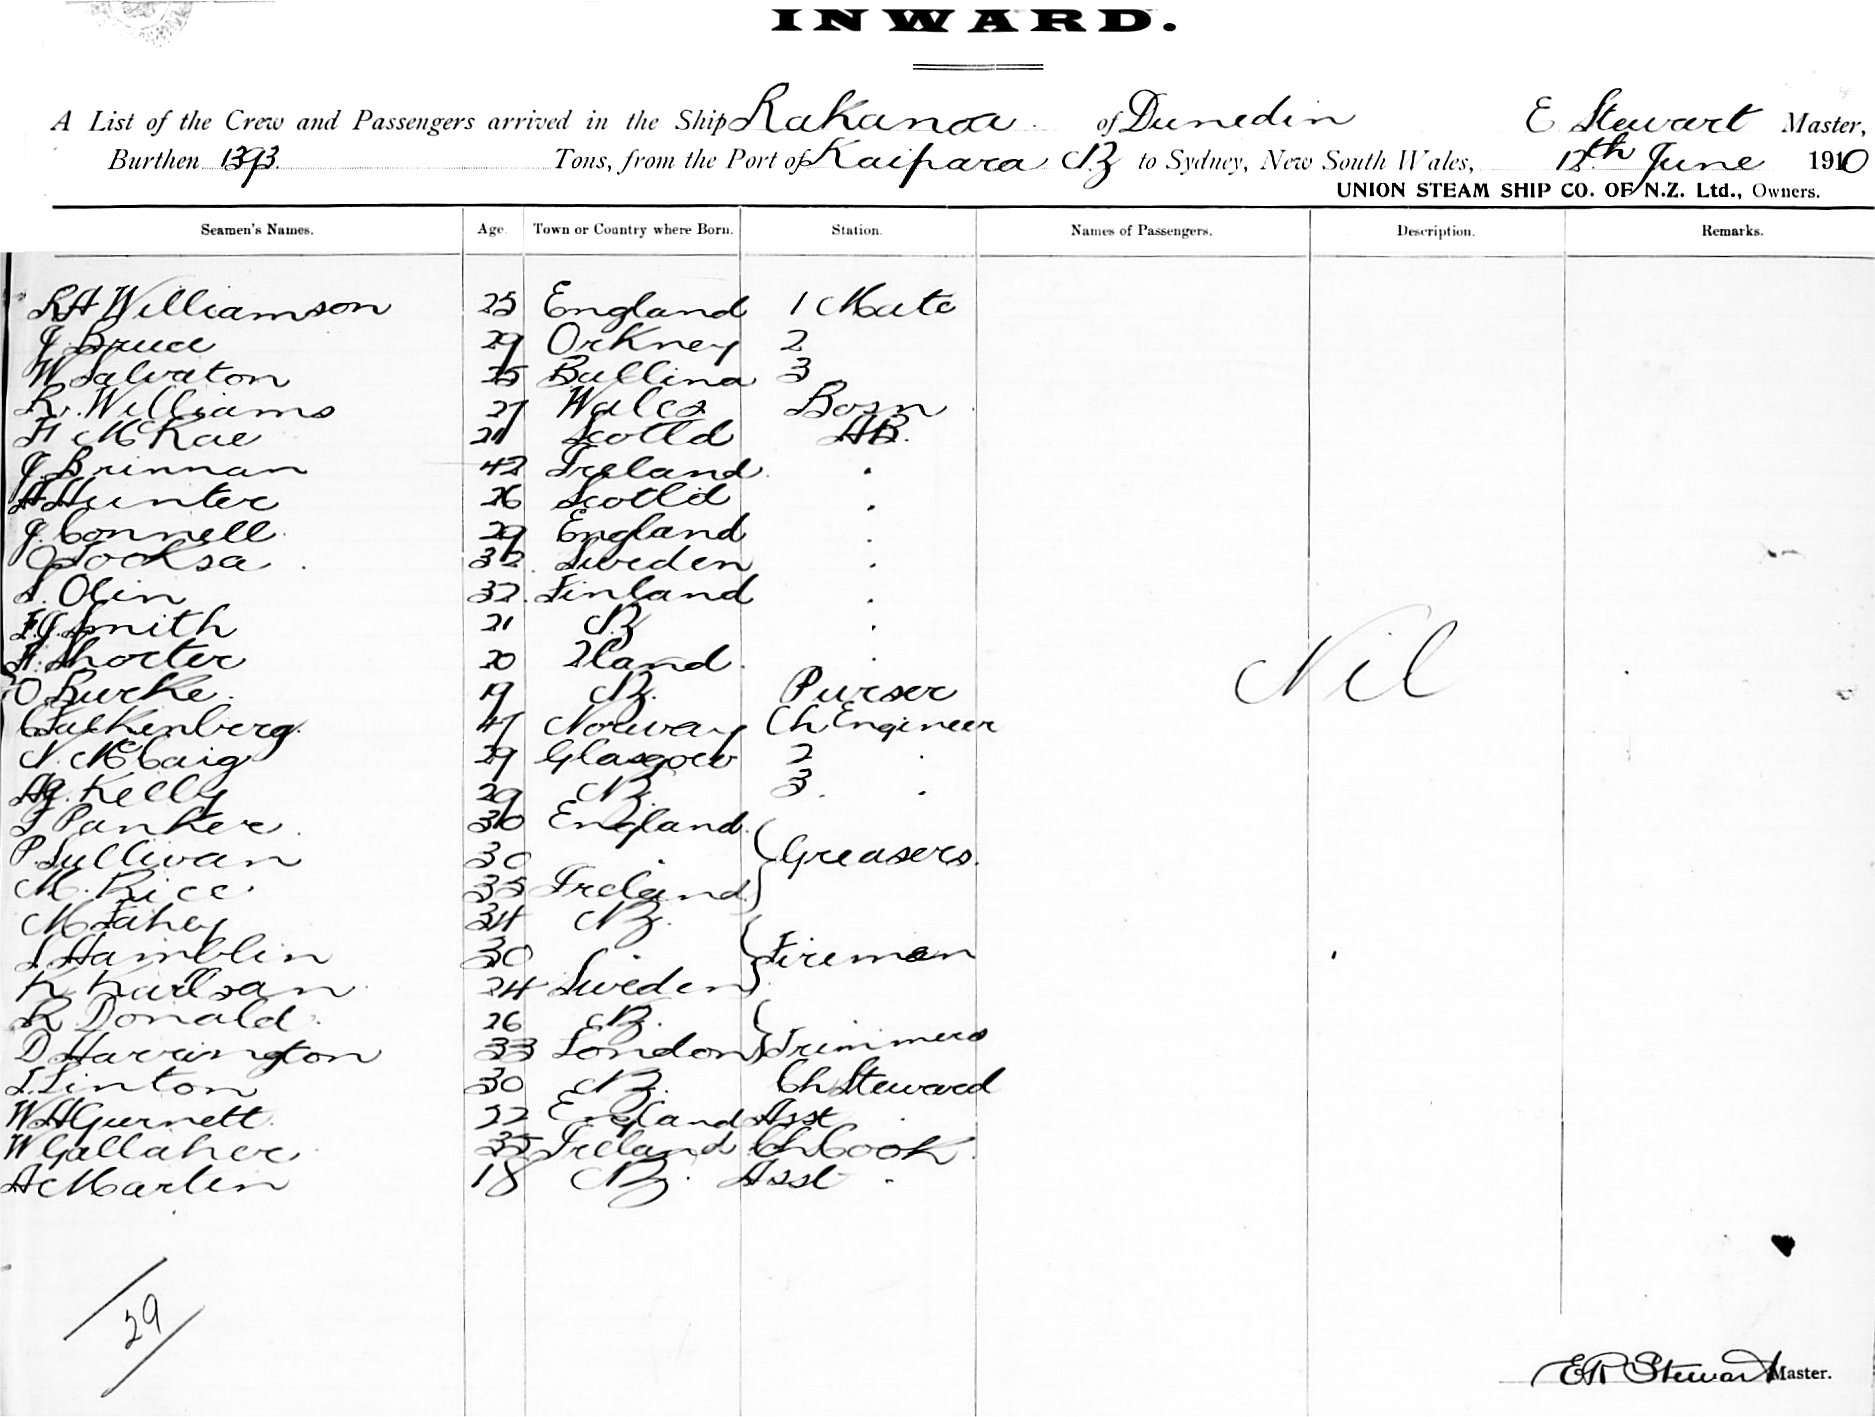 INWARD.
A List of the Crew and Passengers arrived in the Ship Rakanoa of Dunedin E Stewart Master,
Burthen 1393 Tons, from the Port of Kaipara NZ to Sydney, New South Wales, 12th June 1910
UNION STEAM SHIP CO. OF N.Z. Ltd., Owners.
Seamen's Names. Age. Town or Country where Born. Station. Names of Passengers. Description. Remarks.
RH Williamson 25 England 1 Mate
J Bruce 29 Orkney 2
W Salvaton 25 Ballina 3
R. Williams 27 Wales Bosn
H McRae 21 Scotld AB.
J Brinnan 42 Ireland "
A Hunter 26 Scotld "
J. Connell 29 England "
O Sooksa 32 Sweden "
S. Olin 32 Finland "
F.J. Smith 21 NZ "
H. Shorter 20 Zland "
O Burke 19 NZ. Purser
C Falkenberg 47 Norway Ch Engineer
N. McCaig 29 Glasgow 2 "
AJ. Kelly 29 NZ. 3. "
J Panker 30 England
P. Sullivan 30 " Greasers.
M. Rice 35 Ireland
M Fahey 34 NZ.
S Hamblin 30 " Firemen
K Karlsan 24 Sweden
R Donald 26 NZ.
D Harrington 33 London Trimmers
T. Linton 30 NZ. Ch Steward
W H Gurnett 22 England Asst "
W Gallaher 35 Ireland Ch Cook
A Marlin 18 NZ. Asst "
Nil
29
ER Stewart Master.